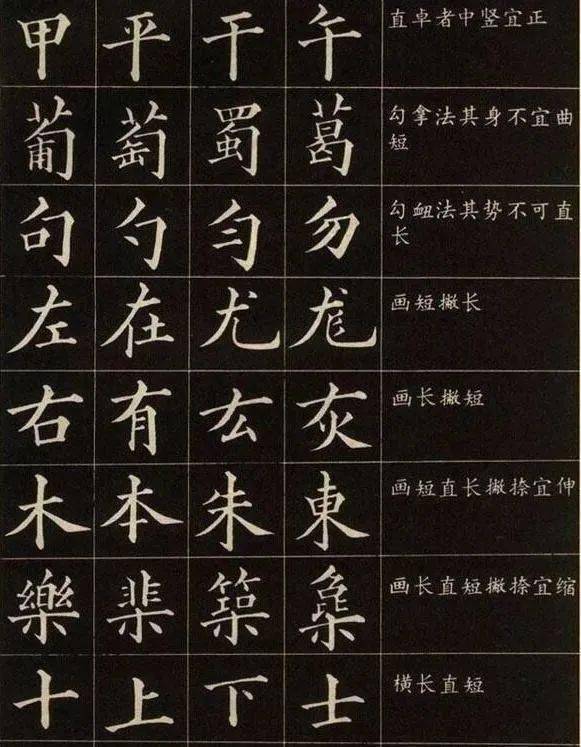 甲 平 干 午 直卓者中竖宜正
葡 萄 蜀 葛 勾拿法其身不宜曲
短
句 勺 匀 勿 勾衄法其势不可直
长
左 在 尤 尨 画短撇长
右 有 厷 灰 画长撇短
木 本 朱 東 画短直长撇捺宜伸
樂 棐 築 梟 画长直短撇捺宜缩
十 上 下 士 横长直短